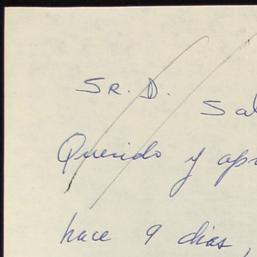 Sr. D.
Sal
Querido y apr
hace 9 días,